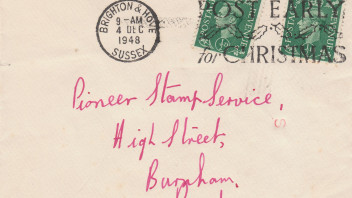 BRIGHTON & HOVE
9-AM
4 DEC
1948
SUSSEX
POST EARLY
for CHRISTMAS
Pioneer Stamp Service,
High Street,
Burnham.